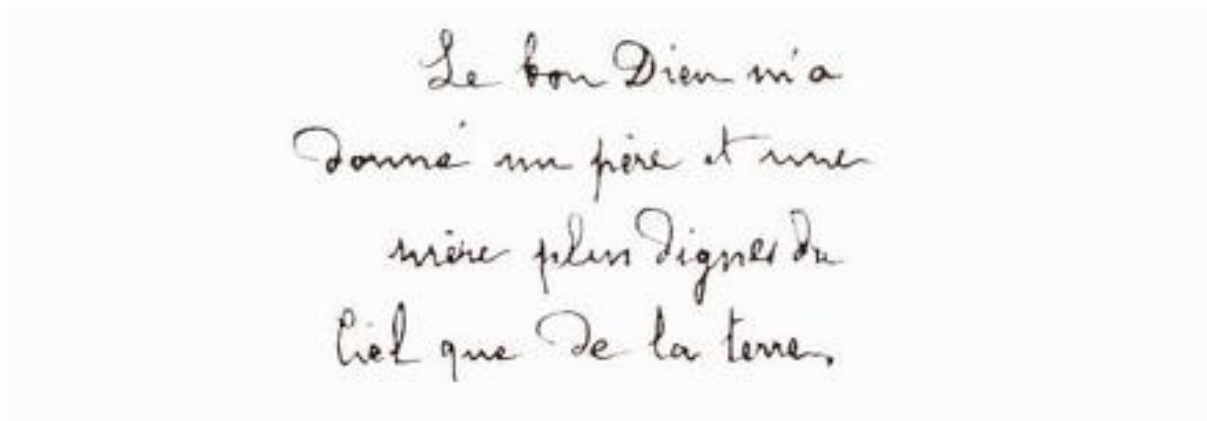 Le bon Dieu m'a
donné un père et une
mère plus dignes du
Ciel que de la terre.